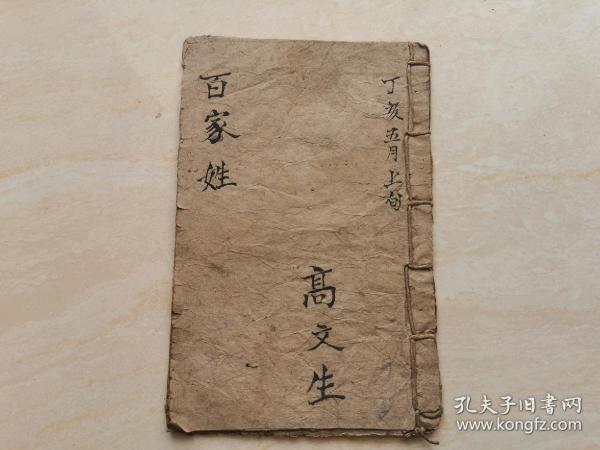 丁亥五月上旬
百家姓
髙文生
孔夫子旧書网
www.kongfz.com